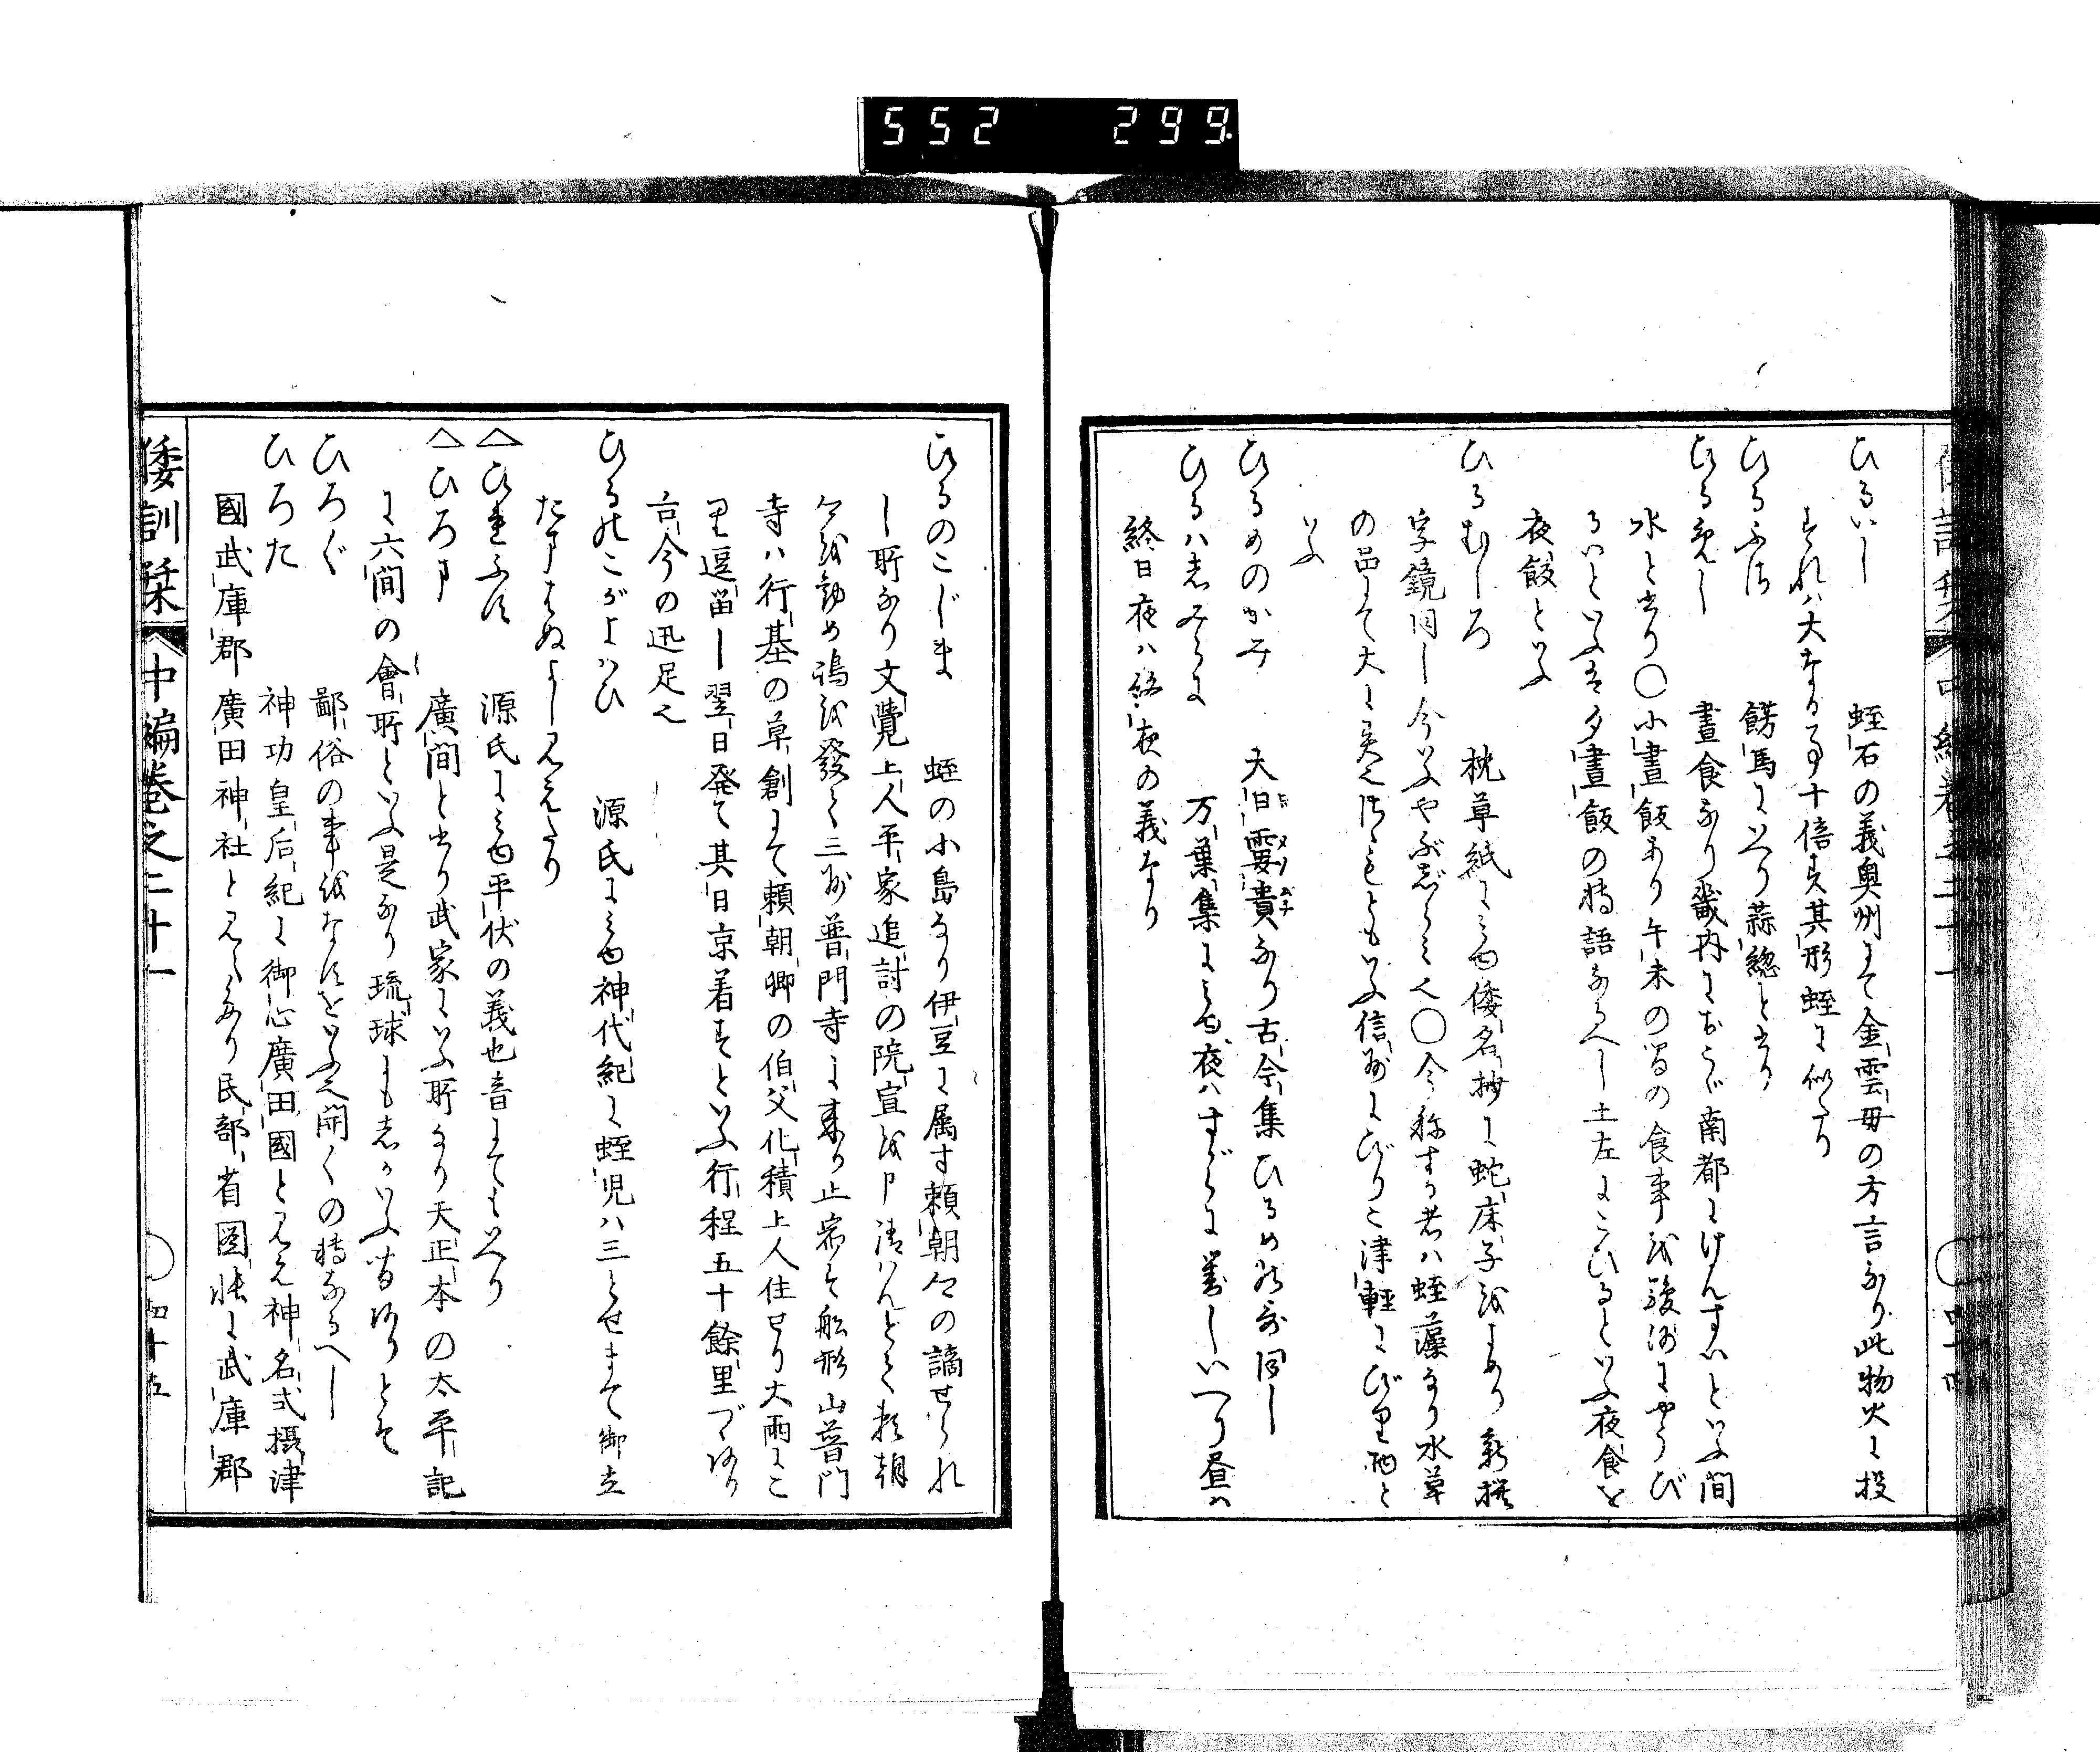 552 299
ひるいし 蛭石の義奥州にて金雲母の方言なり此物火に投
すれハ大なる事十倍す其形蛭に似たり
ひるふさ 餝馬にいへり蒜総と書り
ひるめし 晝食なり畿内におゐて南都にけんずいといふ間
水と書り〇小晝飯あり午未の間の食事を駿河にやうび
るいといふはタ晝飯の轉語なるへし土左にこひるといふ夜食を
夜餕といふ
ひるむしろ 枕草紙にみゆ倭名抄に蛇床子をよめり新撰
字鏡同し今いふやぶじらみ也〇今称する者ハ蛭藻なり水草
の品にて大に異也さゝもともいふ信州にびりこ津軽にび里勘と
いふ
ひるめのかみ 大日孁貴なり古今集ひるめの哥同し
ひるハしみらに 万葉集にみゆ夜ハすがらに對していへり昼ハ
終日夜ハ終夜の義なり
ひるのこじま 蛭の小島なり伊豆に属す頼朝公の謫せられ
し所なり文覺上人平家追討の院宣を申請ハんとて頼朝
公を勧め鴻を發し三州普門寺に来り止宿す船形山普門
寺ハ行基の草創にて頼朝卿の伯父化積上人住せり大雨にこ
里逗留し翌日発て其日京着すといふ行程五十餘里づゝあり
古今の迅足也
ひるのこがよハひ 源氏にみゆ神代紀に蛭児ハ三とせまて御立
たゝすまぬよし見えたり
△ひれふす 源氏にみゆ平伏の義也音にてもいへり
△ひろま 廣間と書り武家にいふ所なり天正本の太平記
に六間の會所といふ是なり琉球にもしかいふ間ありとそ
ひろぐ 鄙俗の事をなすをいふ也開くの轉なるへし
ひろた 神功皇后紀に御心廣田國と見え神名式摂津
國武庫郡廣田神社と見えたり民部省図帳に武庫郡
倭訓栞 中編巻之二十一 四十五